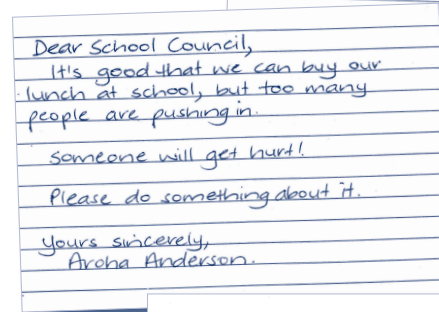 Dear School Council,
It's good that we can buy our
lunch at school, but too many
people are pushing in.
Someone will get hurt!
Please do something about it.
Yours sincerely,
Aroha Anderson.